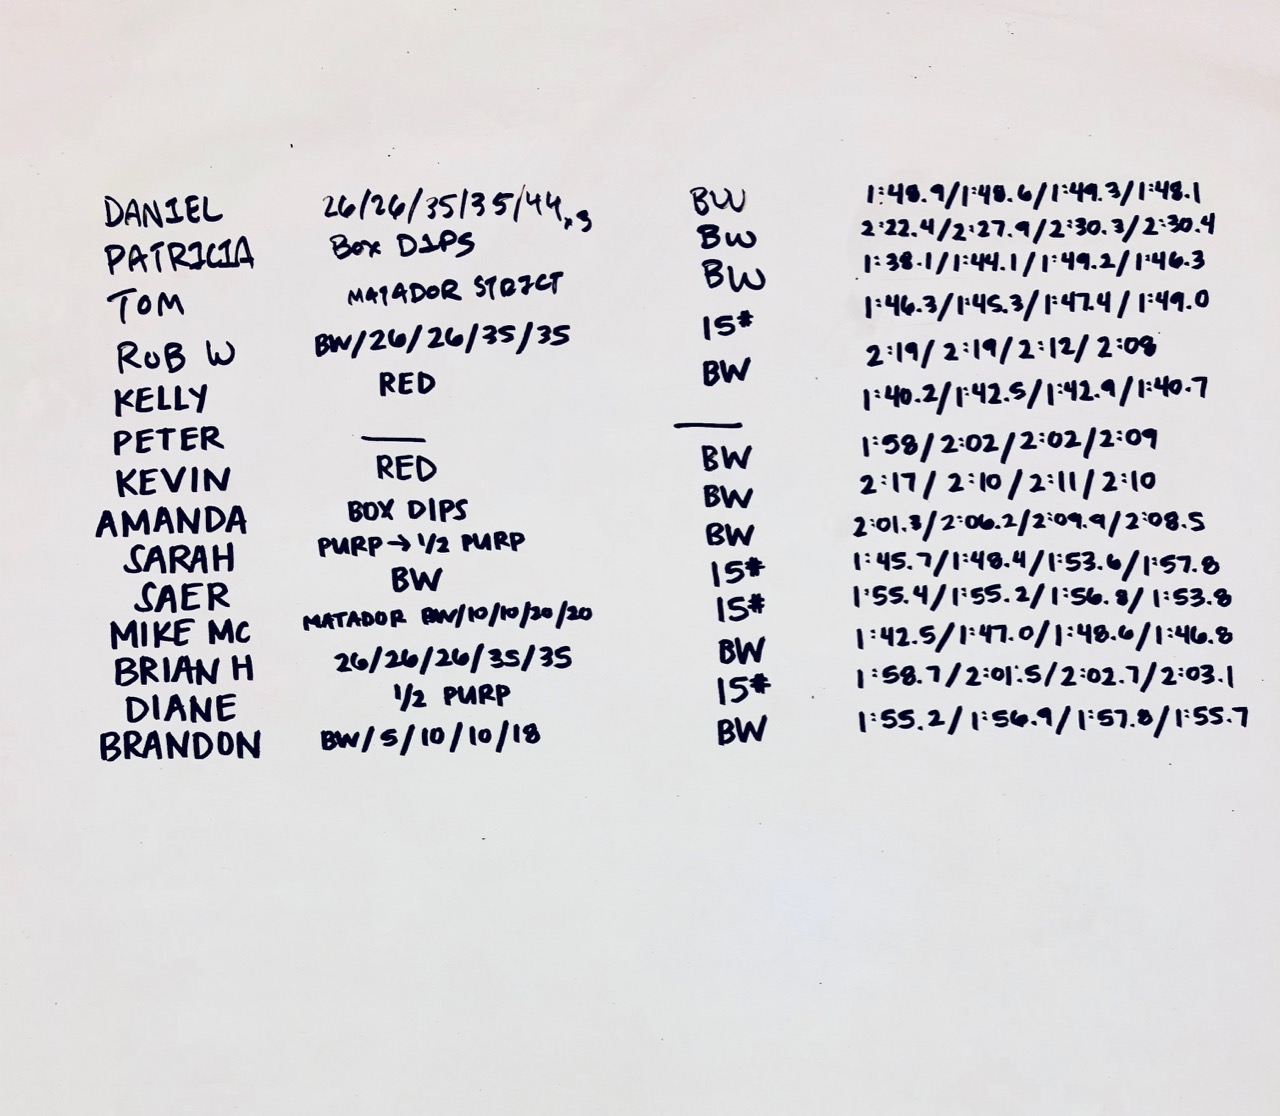 DANIEL 26/26/35/35/44x3 BW 1:48.9/1:48.6/1:49.3/1:48.1
PATRICIA BOX DIPS BW 2:22.4/2:27.9/2:30.3/2:30.4
TOM MATADOR STRICT BW 1:38.1/1:44.1/1:49.2/1:46.3
ROB W BW/26/26/35/35 15# 1:46.3/1:45.3/1:47.4/1:49.0
KELLY RED BW 2:19/2:19/2:12/2:08
PETER — — 1:40.2/1:42.5/1:42.9/1:40.7
KEVIN RED BW 1:58/2:02/2:02/2:09
AMANDA BOX DIPS BW 2:17/2:10/2:11/2:10
SARAH PURP→1/2 PURP BW 2:01.3/2:06.2/2:09.9/2:08.5
SAER BW 15# 1:45.7/1:48.4/1:53.6/1:57.8
MIKE MC MATADOR BW/10/10/20/20 15# 1:55.4/1:55.2/1:56.8/1:53.8
BRIAN H 26/26/26/35/35 BW 1:42.5/1:47.0/1:48.6/1:46.8
DIANE 1/2 PURP 15# 1:58.7/2:01.5/2:02.7/2:03.1
BRANDON BW/5/10/10/18 BW 1:55.2/1:56.9/1:57.8/1:55.7